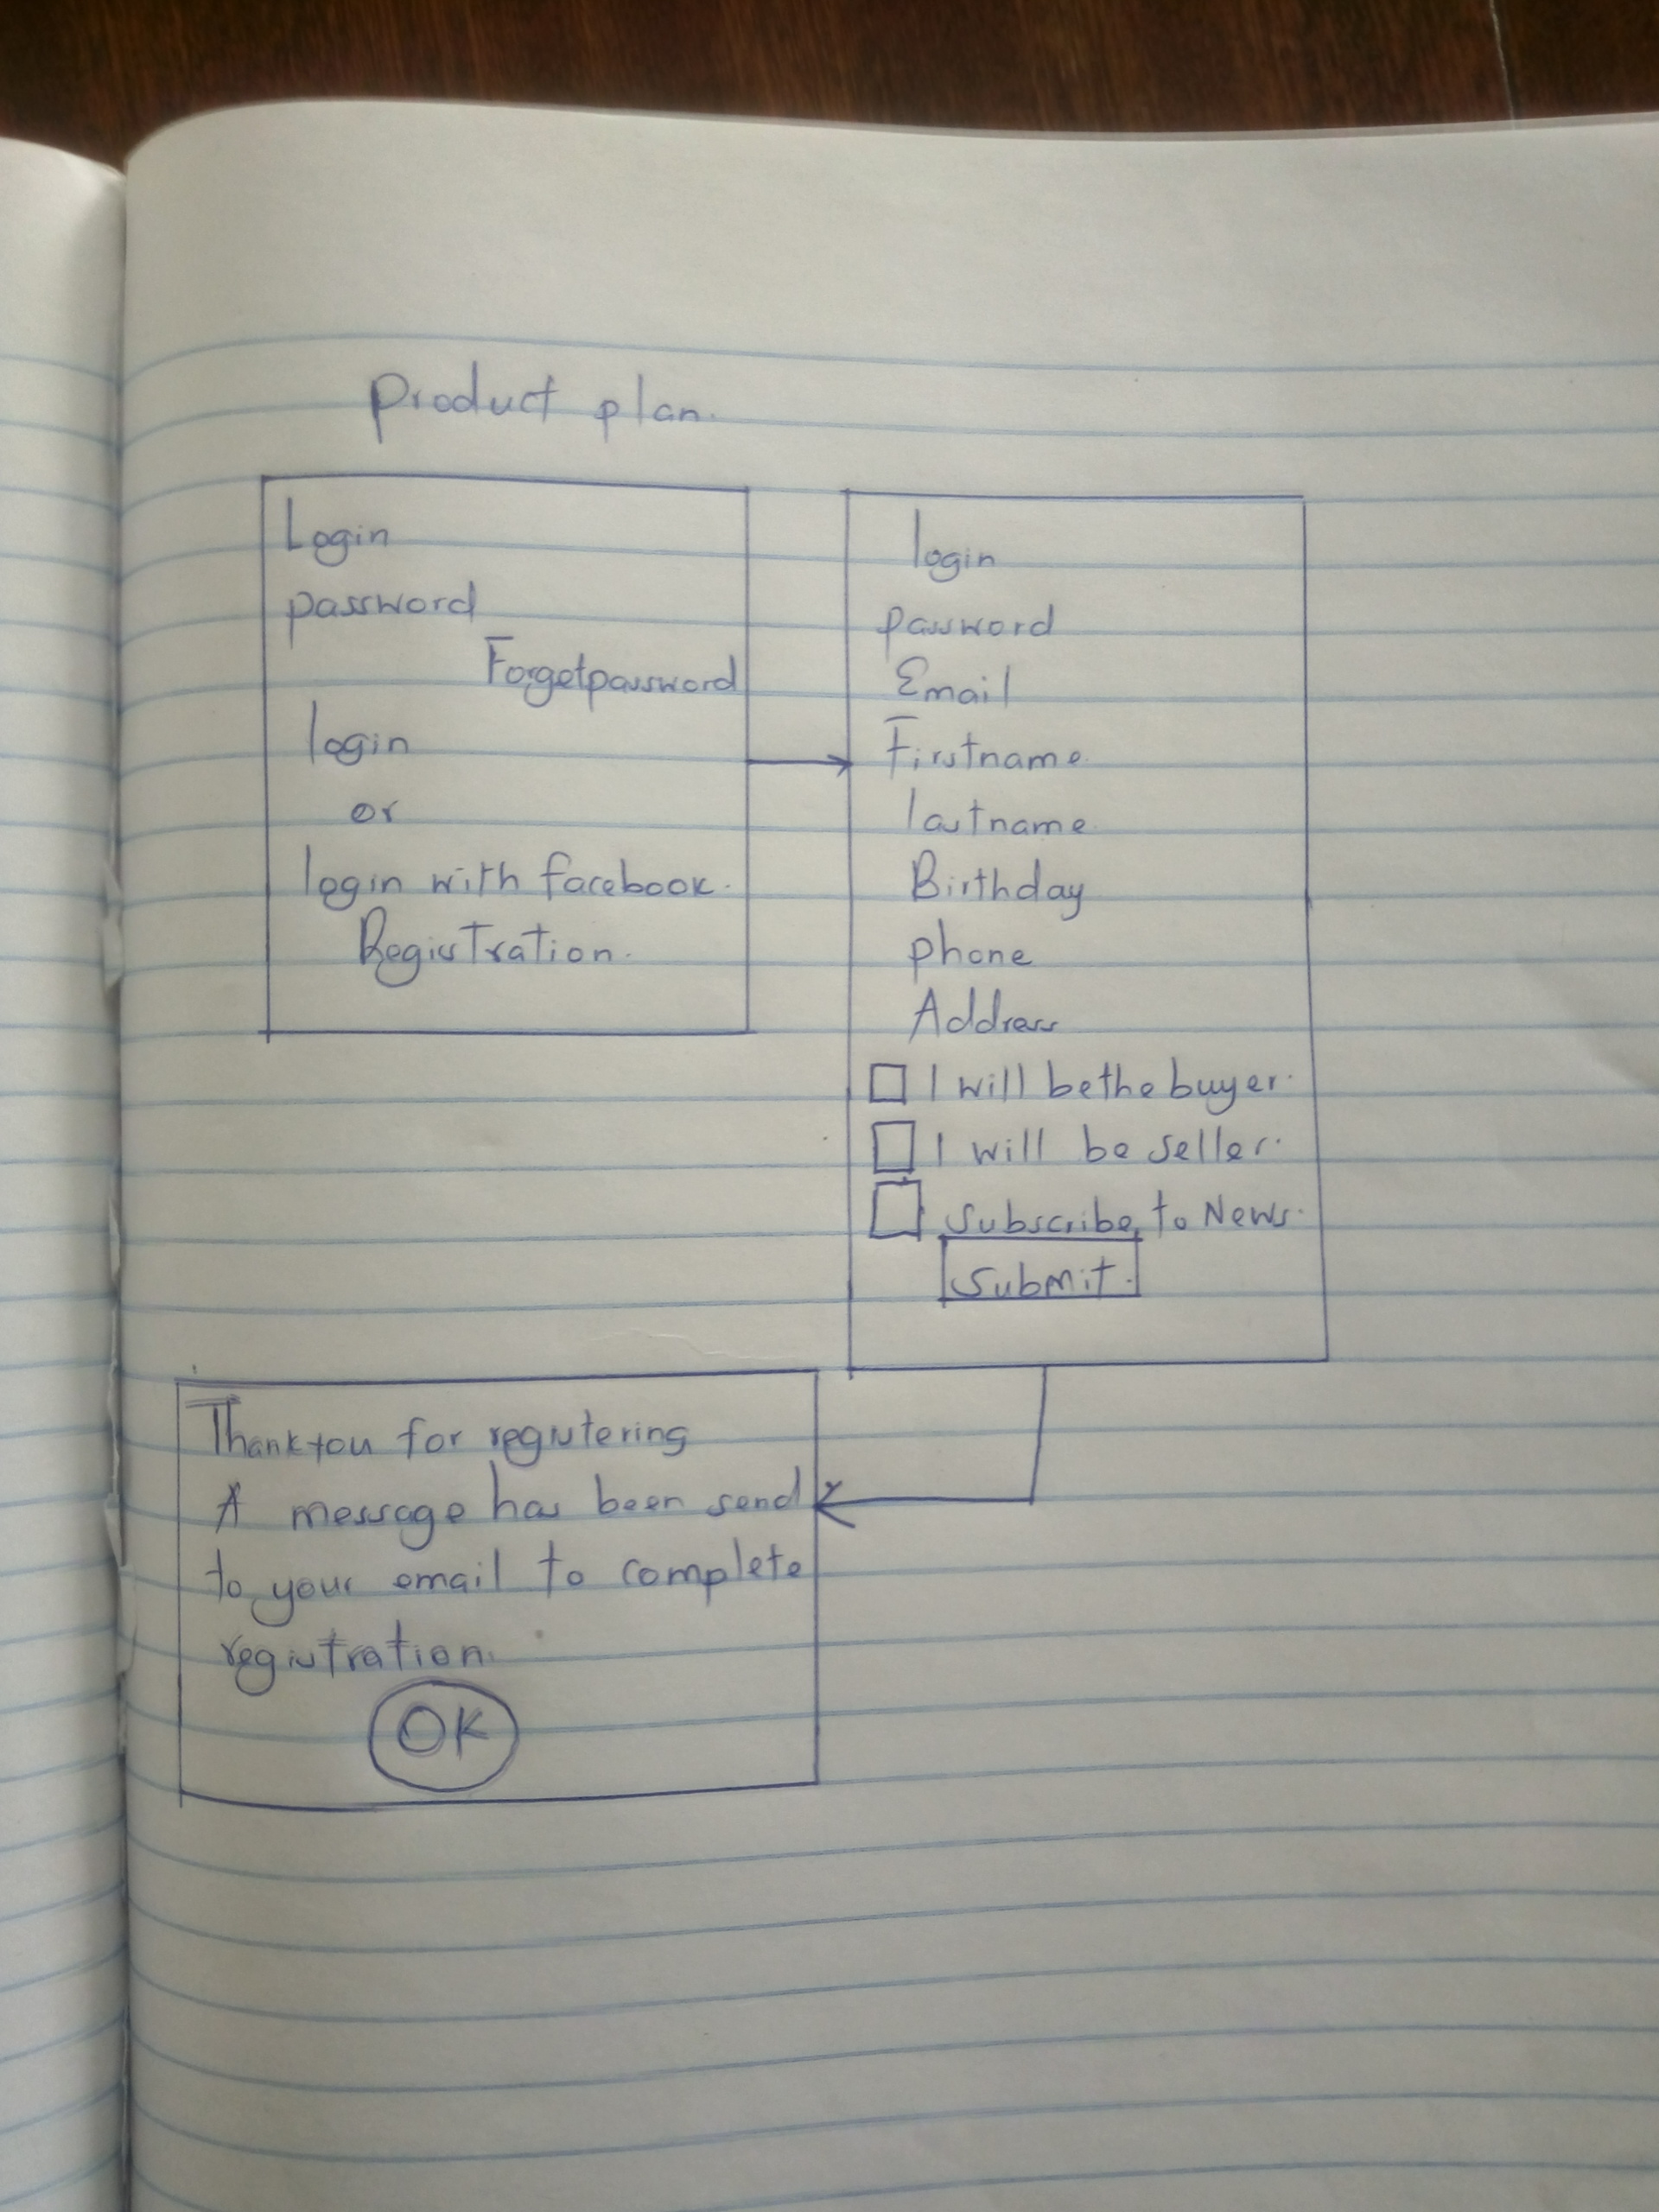 Product plan.
Login
password
Forgetpassword
login
or
login with facebook.
Registration.
login
password
Email
Firstname
lastname
Birthday
phone
Address
I will bethe buyer.
I will be seller.
Subscribe to News.
Submit.
Thankyou for registering
A message has been send
to your email to complete
registration.
OK